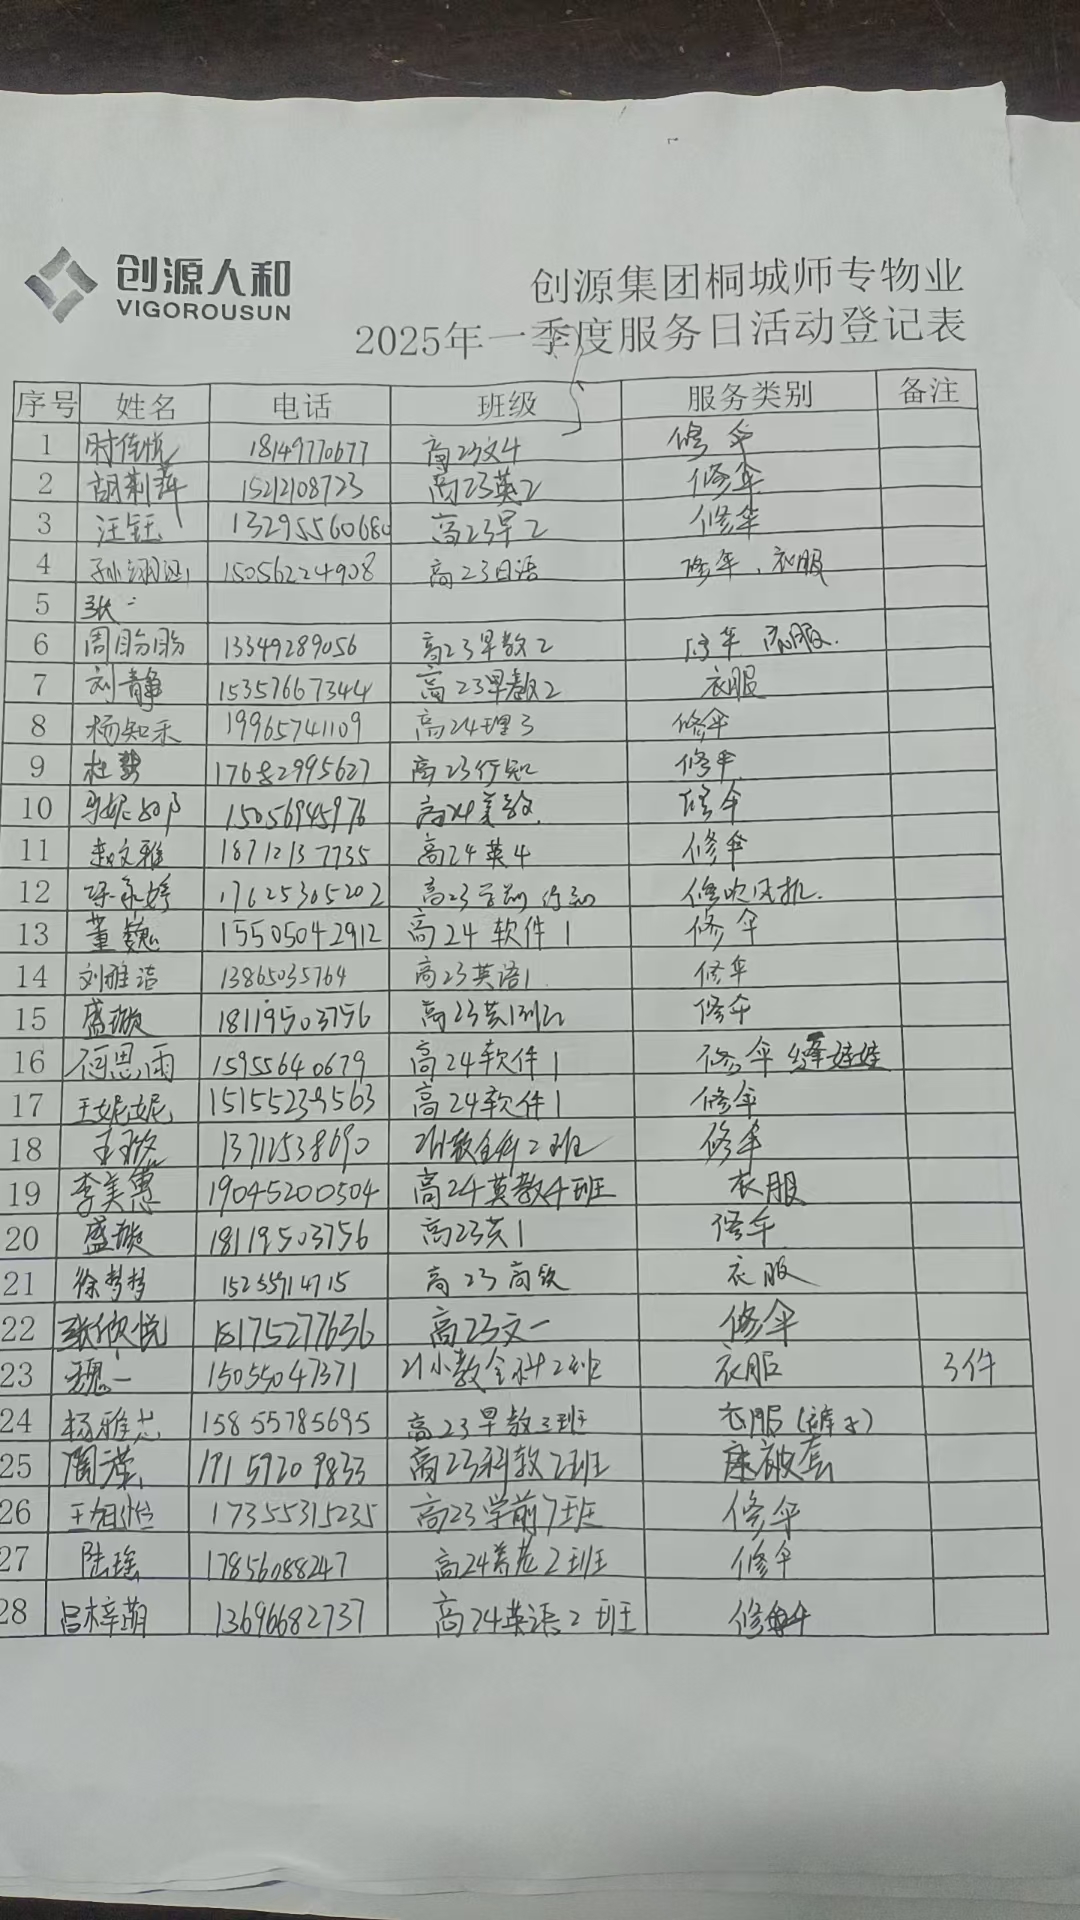 创源人和
VIGOROUSUN
创源集团桐城师专物业
2025年一季度服务日活动登记表
序号 姓名 电话 班级 服务类别 备注
1 时佳悦 18149770677 高23文4 修伞
2 胡莉萍 15212108723 高23英2 修伞
3 汪钰 13295560680 高23早2 修伞
4 孙 15056224908 高23日语 修伞、衣服
5 张
6 周盼盼 13349289056 高23早教2 修伞 衣服.
7 刘静 15357667344 高23早教2 衣服
8 杨知乐 19965741109 高24理3 修伞
9 杜 17682995627 高23行知 修伞
10 马妮 15056945976 高24美教. 修伞
11 赵文雅 18712137735 高24英4 修伞
12 陈 婷 17625305202 高23学前 行知 修吹风机.
13 董巍 15505042912 高24 软件1 修伞
14 刘雅洁 13865035764 高23英语1. 修伞
15 盛璇 18119503756 高23英1 修伞
16 何思雨 15955640679 高24软件1 修伞 缝娃娃
17 王妮妮 15155239563 高24软件1 修伞
18 王 13712538690 教全科2班 修伞
19 李美惠 19045200504 高24英教4班 衣服
20 盛璇 18119503756 高23英1 修伞
21 徐梦梦 15255914715 高23高铁 衣服
22 张欣悦 18175277636 高23文一 修伞
23 魏一 15055047371 21小教全科2班 衣服 3件
24 杨雅 15855785695 高23早教三班 衣服(裤子)
25 陶 19159209833 高23科教2班 床被套
26 王旭 17355315235 高23学前7班 修伞
27 陆瑶 17856088247 高24养老2班 修伞
28 吕梓萌 13696682737 高24英语2班 修伞